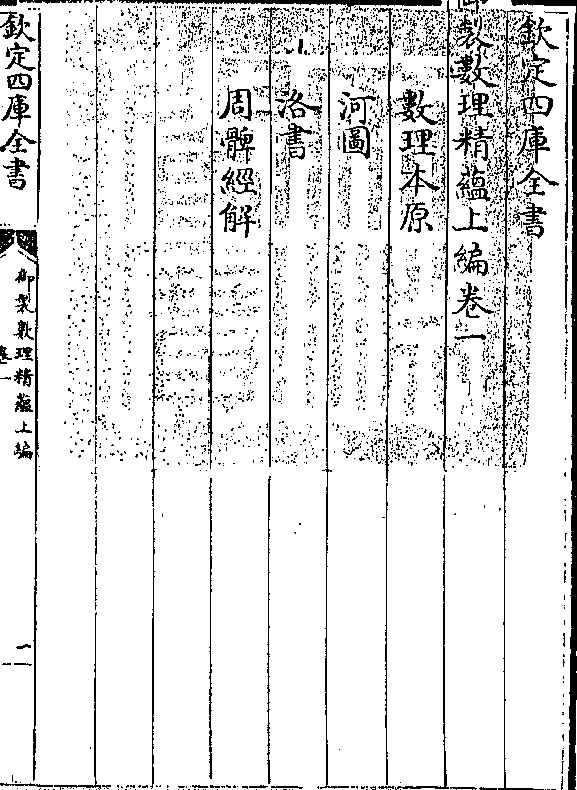 欽定四庫全書
御製數理精蘊上編卷一
數理本原
河圖
洛書
周髀經解
欽定四庫全書
御製數理精蘊上編
卷一
一